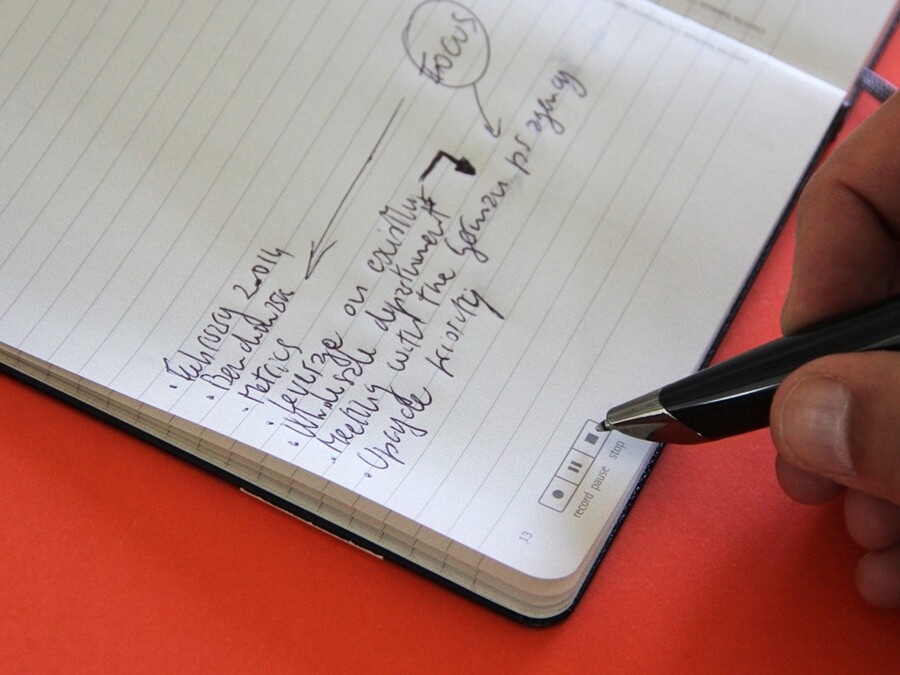 FOCUS
• February 2014
• Benchmarks
• Metrics
• Leverage on existing
• Wholesale department
• Meeting with the German pr agency
• Upgrade priority
record pause stop
13